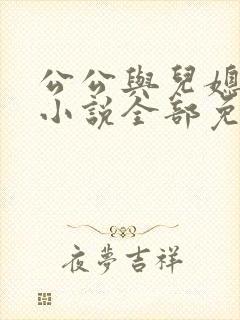 公公與兒媳
小說全部免
夜夢吉祥